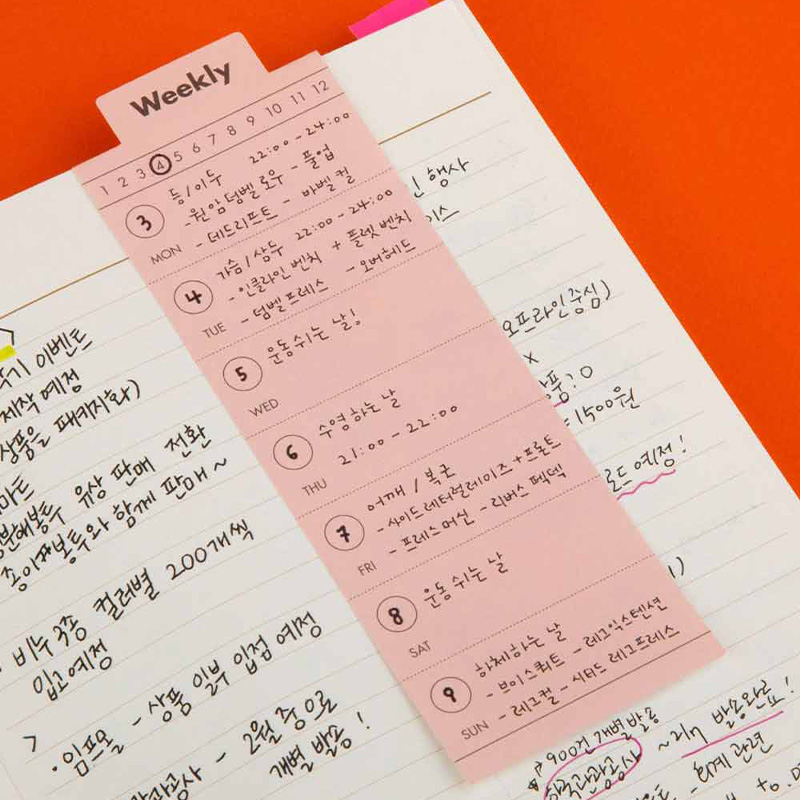 Weekly
1 2 3 4 5 6 7 8 9 10 11 12
3 MON
등/이두 22:00-24:00
-원암 덤벨 로우 - 풀업
- 데드리프트 - 바벨 컬
4 TUE
가슴/삼두 22:00-24:00
- 인클라인 벤치 + 플랫 벤치
- 덤벨 프레스 - 오버헤드
5 WED
운동 쉬는 날!
6 THU
수영 하는 날
21:00 - 22:00
7 FRI
어깨 / 복근
- 사이드 레터럴 레이즈 + 프론트
- 프레스 머신 - 리버스 펙덱
8 SAT
운동 쉬는 날
9 SUN
하체 하는 날
- 브이 스쿼트 - 레그 익스텐션
- 레그 컬 - 시티드 레그 프레스
이벤트
제작 예정
상품을 패키지화)
유상 판매 전환
종이 봉투와 함께 판매~
비누 3종 컬러별 200개씩
입고 예정
- 상품 일부 입점 예정
- 2월 중으로
개별 발송!
행사
오프라인 중심)
x
: 0
= 1500원
예정!
)
900건 개별 발송
발송 완료!
- 회계 관련